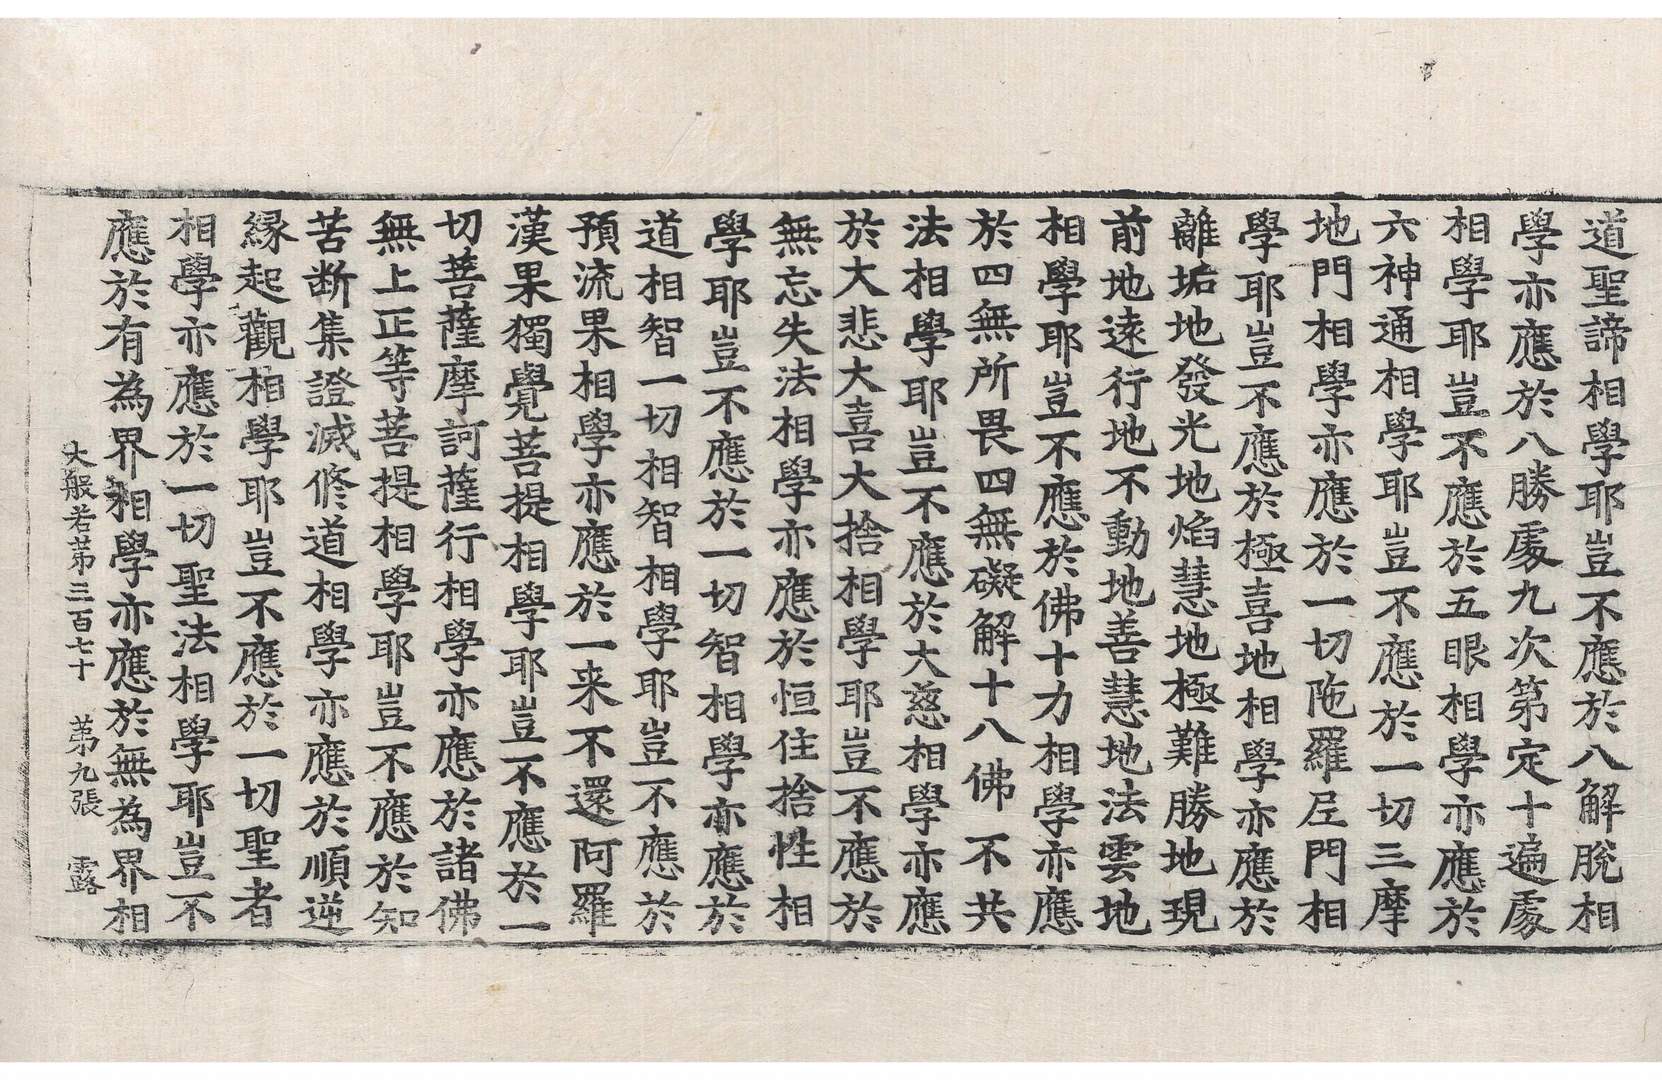 道聖諦相學耶豈不應於八解脫相
學亦應於八勝處九次第定十遍處
相學耶豈不應於五眼相學亦應於
六神通相學耶豈不應於一切三摩
地門相學亦應於一切陁羅尼門相
學耶豈不應於極喜地相學亦應於
離垢地發光地焰慧地極難勝地現
前地遠行地不動地善慧地法雲地
相學耶豈不應於佛十力相學亦應
於四無所畏四無礙解十八佛不共
法相學耶豈不應於大慈相學亦應
於大悲大喜大捨相學耶豈不應於
無忘失法相學亦應於恒住捨性相
學耶豈不應於一切智相學亦應於
道相智一切相智相學耶豈不應於
預流果相學亦應於一来不還阿羅
漢果獨覺菩提相學耶豈不應於一
切菩薩摩訶薩行相學亦應於諸佛
無上正等菩提相學耶豈不應於知
苦断集證滅修道相學亦應於順逆
縁起觀相學耶豈不應於一切聖者
相學亦應於一切聖法相學耶豈不
應於有為界相學亦應於無為界相
大般若第三百七十 第九張 露